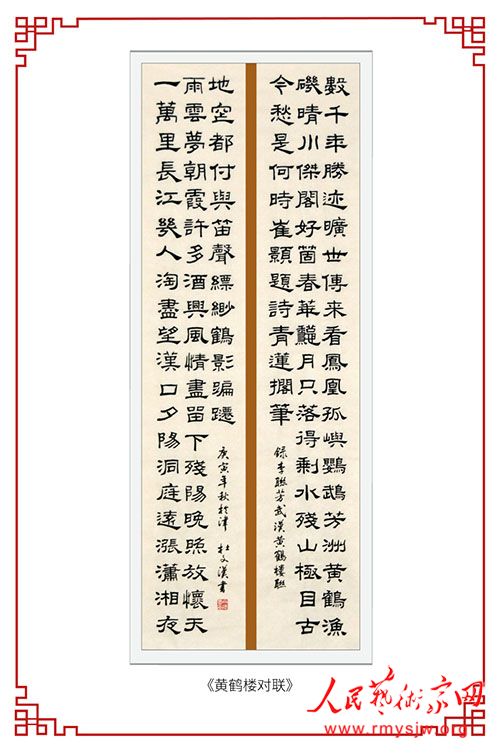 數千年勝迹曠世傳來看鳳凰孤嶼鸚鵡芳洲黄鶴漁
磯晴川傑閣好箇春華龝月只落得剩水殘山極目古
今愁是何時崔顥題詩青蓮擱筆
錄李聯芳武漢黄鶴樓聯
一萬里長江幾人淘盡望漢口夕陽洞庭遠漲瀟湘夜
雨雲夢朝霞許多酒興風情盡留下殘陽晚照放懷天
地空都付與笛聲縹緲鶴影蹁躚
庚寅年秋於津 杜文漢書
《黄鹤楼对联》
人民藝術家网
www.rmysjw.org